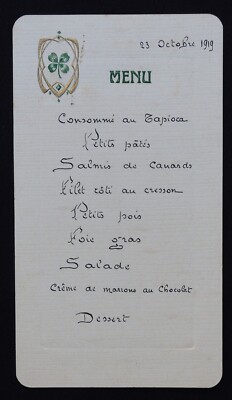 23 Octobre 1919
MENU
Consommé au Tapioca
Petits pâtés
Salmis de Canards
Filet rôti au cresson
Petits pois
Foie gras
Salade
Crème de marrons au Chocolat
Dessert